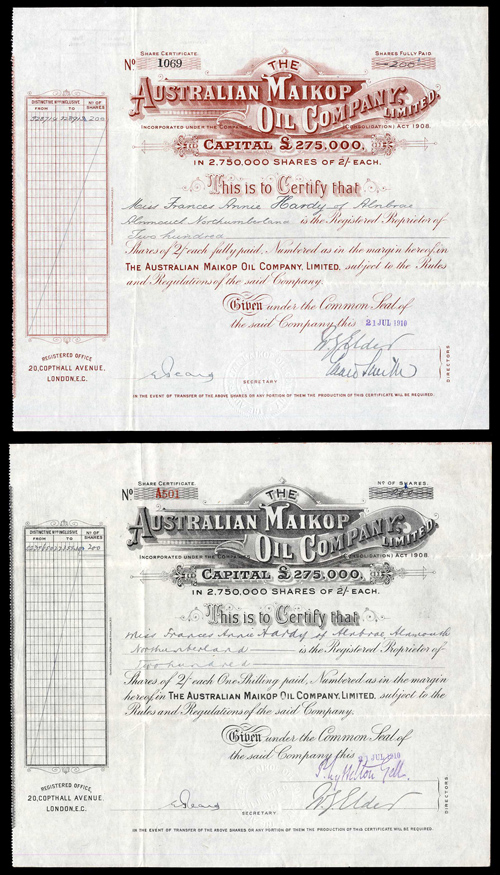 SHARE CERTIFICATE.
SHARES FULLY PAID.
No 1069
200
THE
AUSTRALIAN MAIKOP
OIL COMPANY, LIMITED.
INCORPORATED UNDER THE COMPANIES (CONSOLIDATION) ACT 1908.
CAPITAL £275,000.
IN 2,750,000 SHARES OF 2/- EACH.
DISTINCTIVE Nos INCLUSIVE
No OF SHARES
FROM TO
200
This is to Certify that
Miss Frances Annie Hardy of Alnbrae
Alnmouth Northumberland is the Registered Proprietor of
Two hundred
Shares of 2/- each fully paid, Numbered as in the margin hereof in
THE AUSTRALIAN MAIKOP OIL COMPANY, LIMITED, subject to the Rules
and Regulations of the said Company.
Given under the Common Seal of
the said Company this 21 JUL 1910
W G Elder
DIRECTORS
REGISTERED OFFICE
20, COPTHALL AVENUE,
LONDON, E.C.
SECRETARY
IN THE EVENT OF TRANSFER OF THE ABOVE SHARES OR ANY PORTION OF THEM THE PRODUCTION OF THIS CERTIFICATE WILL BE REQUIRED.
SHARE CERTIFICATE.
No OF SHARES.
No A501
THE
AUSTRALIAN MAIKOP
OIL COMPANY, LIMITED.
INCORPORATED UNDER THE COMPANIES (CONSOLIDATION) ACT 1908.
CAPITAL £275,000.
IN 2,750,000 SHARES OF 2/- EACH.
DISTINCTIVE Nos INCLUSIVE
No OF SHARES
FROM TO
200
This is to Certify that
Miss Frances Annie Hardy of Alnbrae Alnmouth
Northumberland is the Registered Proprietor of
Two hundred
Shares of 2/- each One Shilling paid, Numbered as in the margin
hereof in THE AUSTRALIAN MAIKOP OIL COMPANY, LIMITED, subject to the
Rules and Regulations of the said Company.
Given under the Common Seal of
the said Company this JUL 1910
W G Elder
DIRECTORS
REGISTERED OFFICE
20, COPTHALL AVENUE,
LONDON, E.C.
SECRETARY
IN THE EVENT OF TRANSFER OF THE ABOVE SHARES OR ANY PORTION OF THEM THE PRODUCTION OF THIS CERTIFICATE WILL BE REQUIRED.